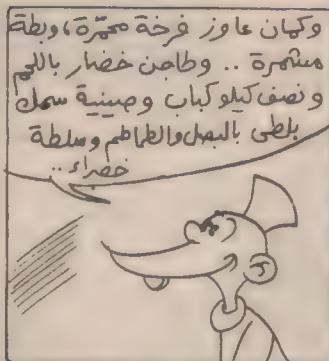 وكمان عاوز فرخة محمّرة، وبطة
مشمرة .. وطاجن خضار باللحم
ونصف كيلو كباب وصينية سمك
بلطى بالبصل والطماطم وسلطة
خضراء ..